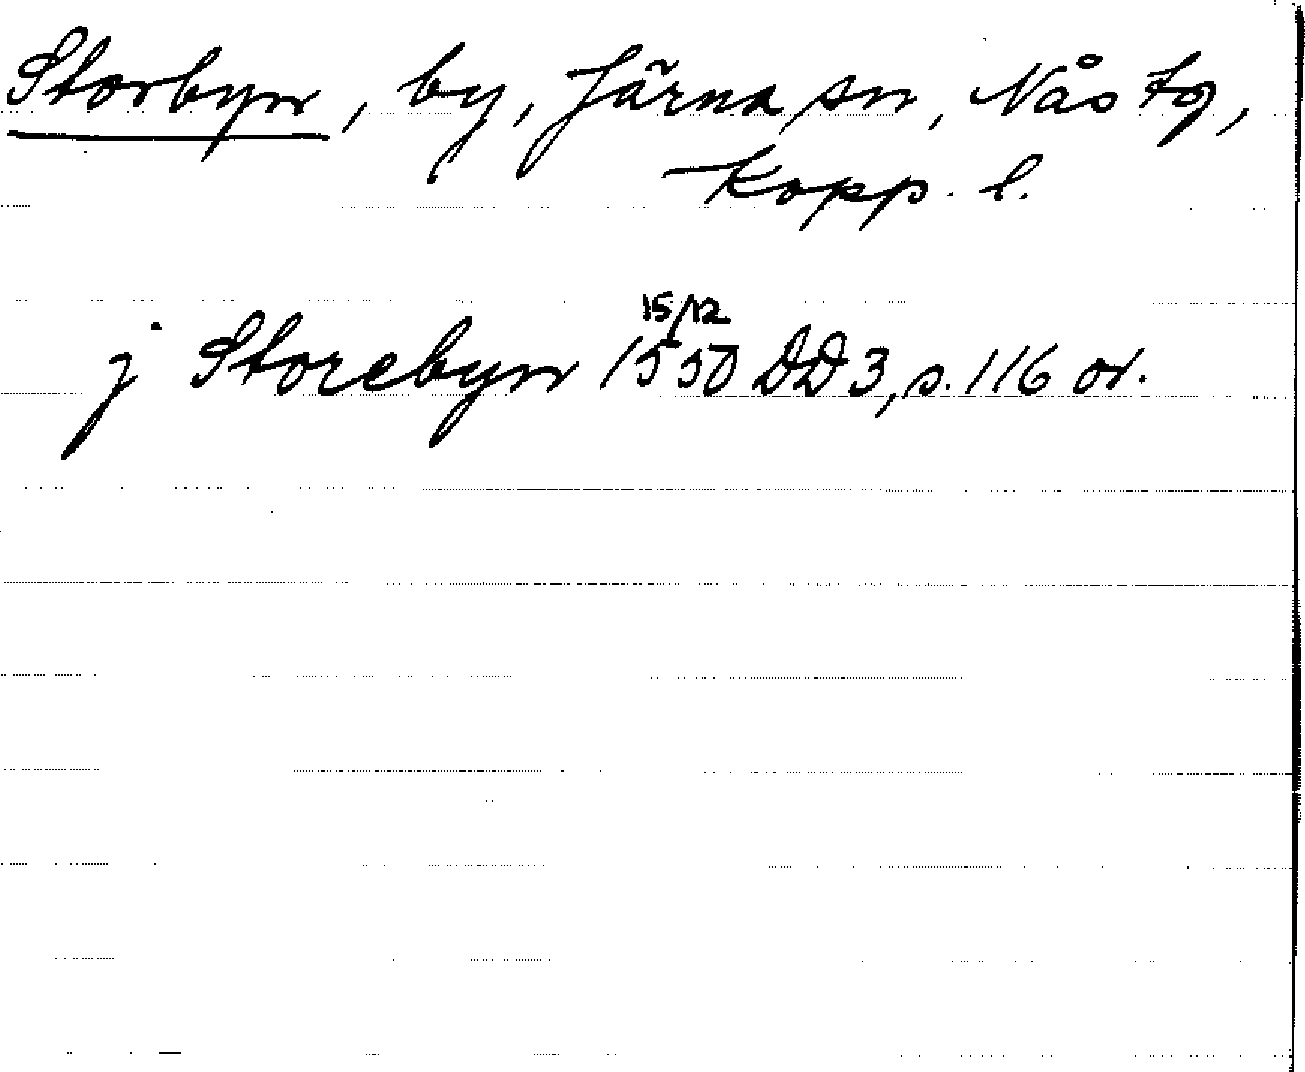 Storbyn, by, Järna sn, Nås tg,
Kopp. l.
15/12
j Storebyn 1550 DD 3, s. 116 or.